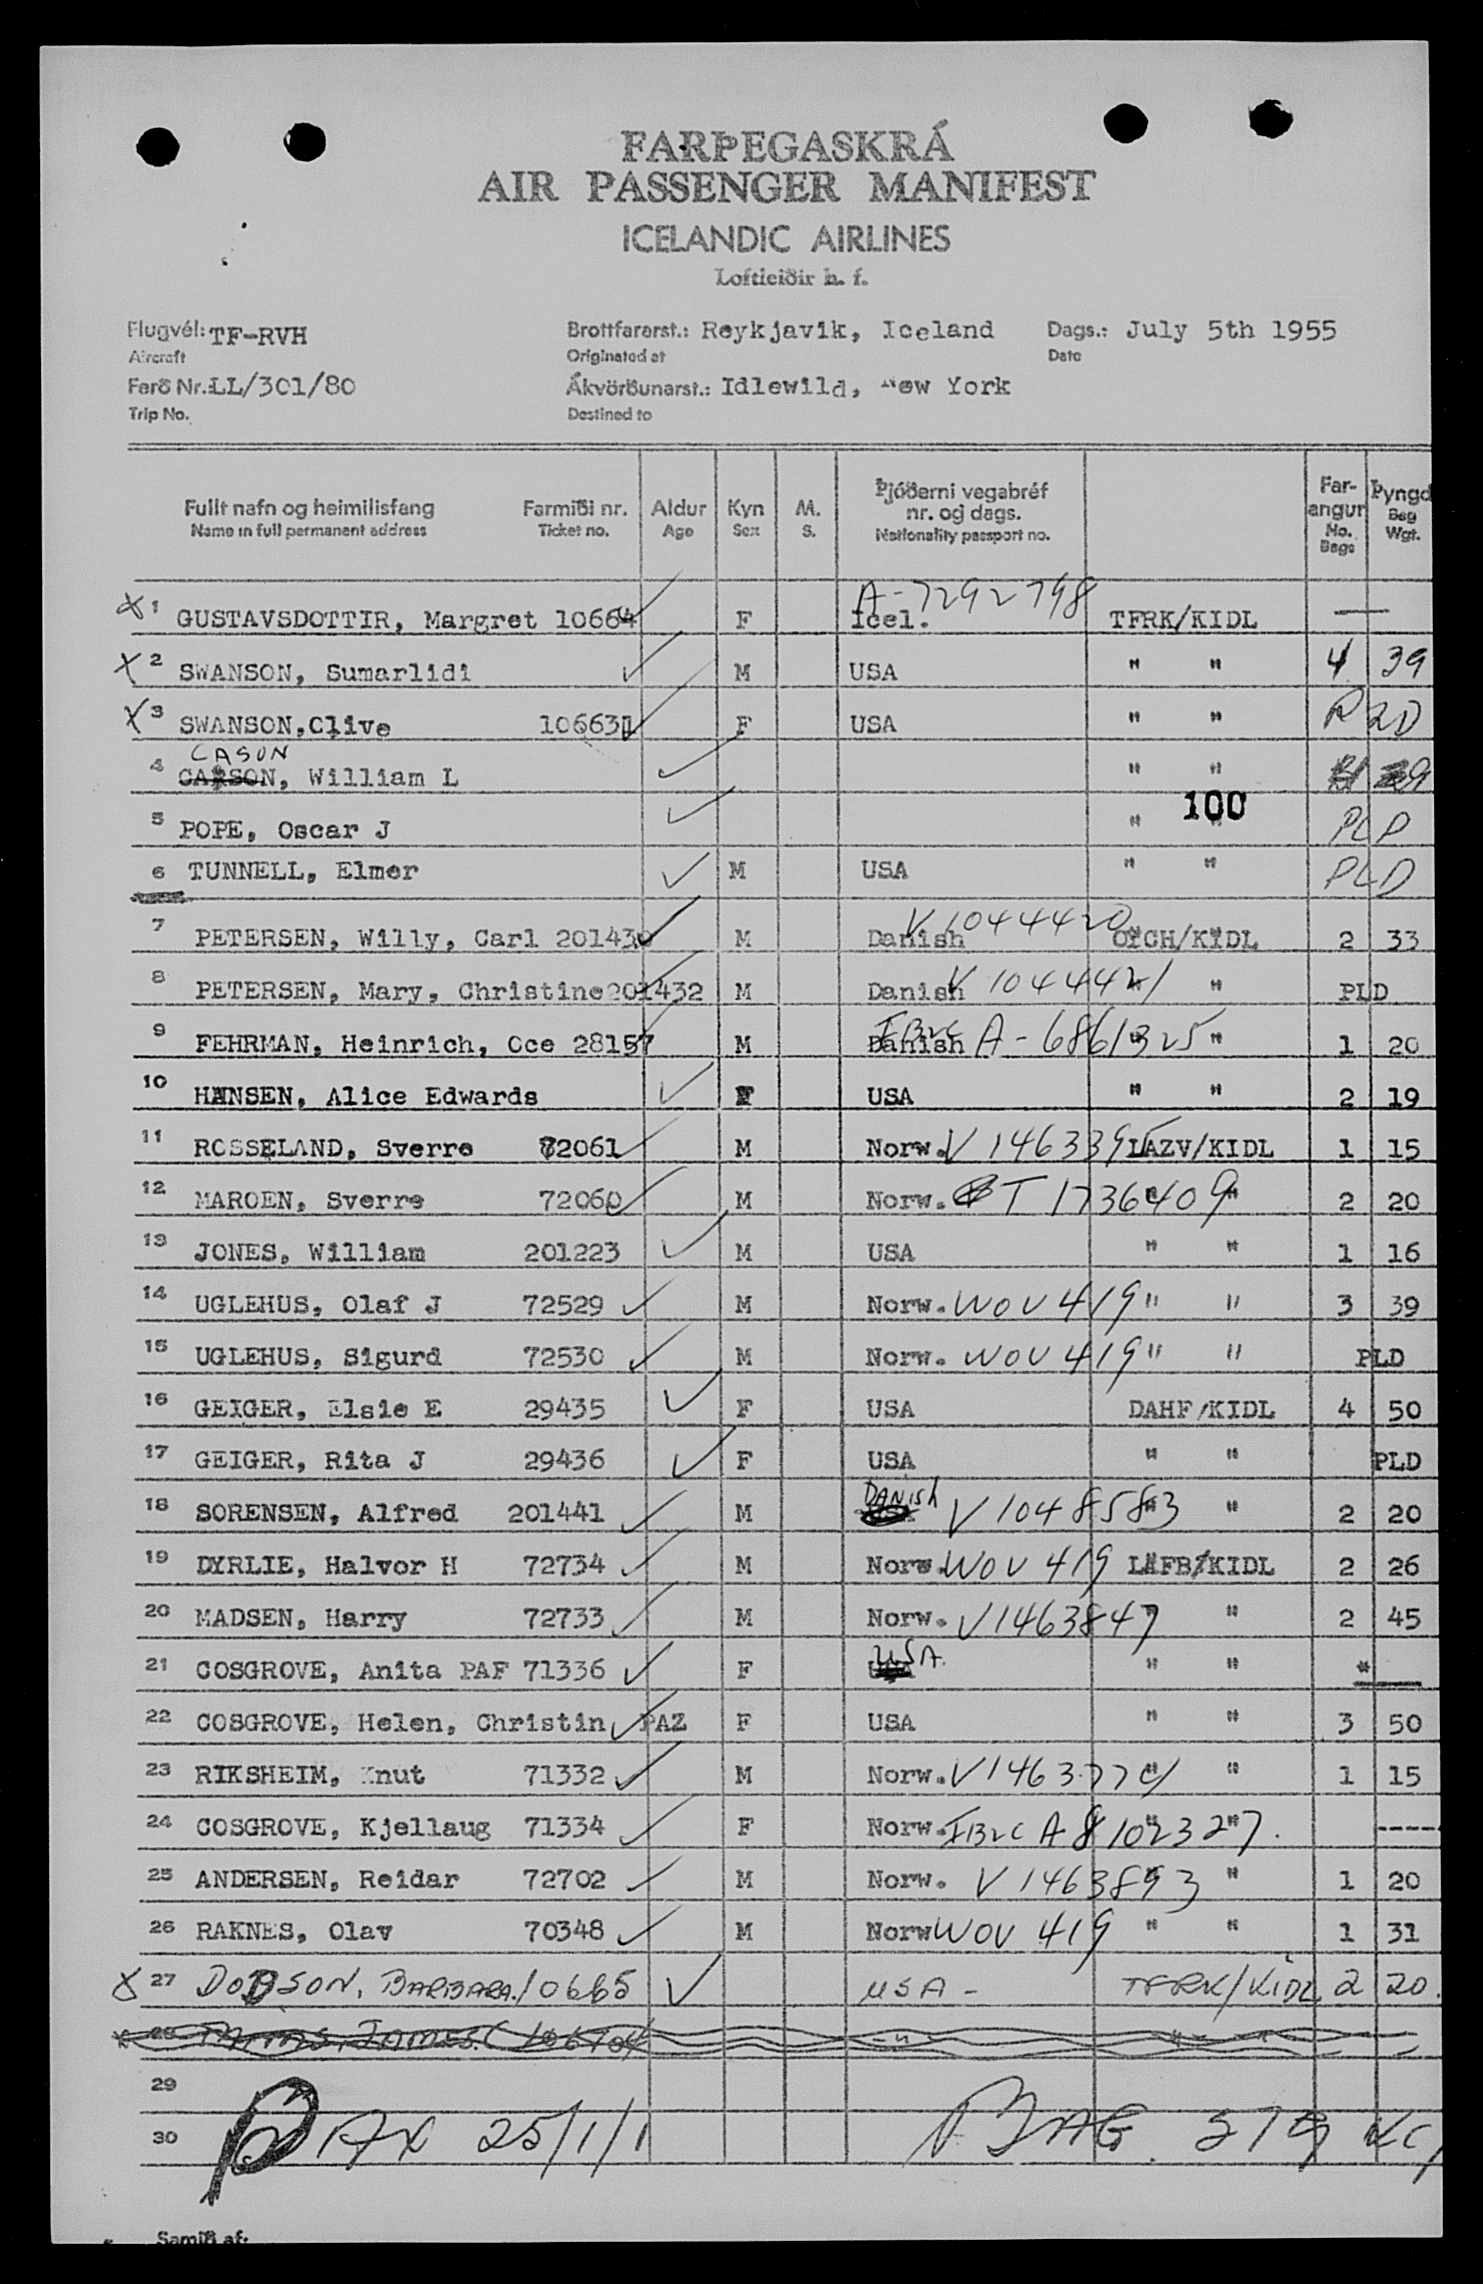 FARÞEGASKRÁ
AIR PASSENGER MANIFEST
ICELANDIC AIRLINES
Loftleiðir h. f.
Flugvél: TF-RVH Brottfararst.: Reykjavik, Iceland Dags.: July 5th 1955
Aircraft Originated at Date
Ferð Nr. LL/301/80 Ákvörðunarst.: Idlewild, New York
Trip No. Destined to
Fullt nafn og heimilisfang Farmiði nr. Aldur Kyn M. Þjóðerni vegabréf nr. og dags. Far-angur Þyngd
Name in full permanent address Ticket no. Age Sex S. Nationality passport no. No. Bags Bag Wgt.
A-7292798
X 1 GUSTAVSDOTTIR, Margret 10664 F Icel. TFRK/KIDL —
X 2 SWANSON, Sumarlidi M USA " " 4 39
X 3 SWANSON, Clive 10663 F USA " "
CASON
4 CARSON, William L " "
100
5 POPE, Oscar J " " PLD
6 TUNNELL, Elmer M USA " " PLD
7 PETERSEN, Willy, Carl 201430 M Danish V1044420 CICH/KIDL 2 33
8 PETERSEN, Mary, Christine 201432 M Danish V 1044421 " " PLD
9 FEHRMAN, Heinrich, Oce 28157 M Danish A-6861325 " " 1 20
10 HANSEN, Alice Edwards F USA " " 2 19
11 ROSSELAND, Sverre 72061 M Norw. V 1463395 LAZV/KIDL 1 15
12 MAROEN, Sverre 72060 M Norw. T 1736409 " " 2 20
13 JONES, William 201223 M USA " " 1 16
14 UGLEHUS, Olaf J 72529 M Norw. WOV 419 " " 3 39
15 UGLEHUS, Sigurd 72530 M Norw. WOV 419 " " PLD
16 GEIGER, Elsie E 29435 F USA DAHF/KIDL 4 50
17 GEIGER, Rita J 29436 F USA " " PLD
18 SORENSEN, Alfred 201441 M DANish V 1048583 " " 2 20
19 DYRLIE, Halvor H 72734 M Norw. WOV 419 LAFB/KIDL 2 26
20 MADSEN, Harry 72733 M Norw. V1463847 " " 2 45
21 COSGROVE, Anita PAF 71336 F USA. " "
22 COSGROVE, Helen, Christin PAZ F USA " " 3 50
23 RIKSHEIM, Knut 71332 M Norw. " " 1 15
24 COSGROVE, Kjellaug 71334 F Norw. A 8102327. " " -----
25 ANDERSEN, Reidar 72702 M Norw. V 1463893 " " 1 20
26 RAKNES, Olav 70348 M Norw WOV 419 " " 1 31
X 27 DOBSON, BARBARA. 10665 USA - TFRK/KIDL 2 20.
28
29
30 PAX 25/1/1 BAG. 519 KG
Samið af: